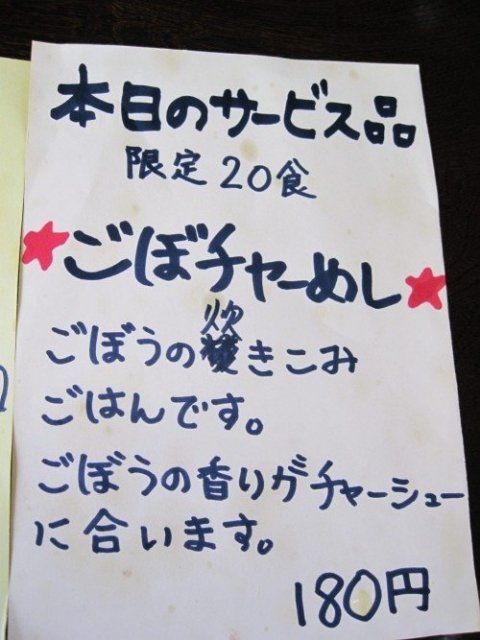 本日のサービス品
限定20食
ごぼチャーめし
ごぼうの炊きこみ
ごはんです。
ごぼうの香りがチャーシュー
に合います。
180円